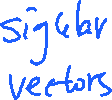 sigular
vectors